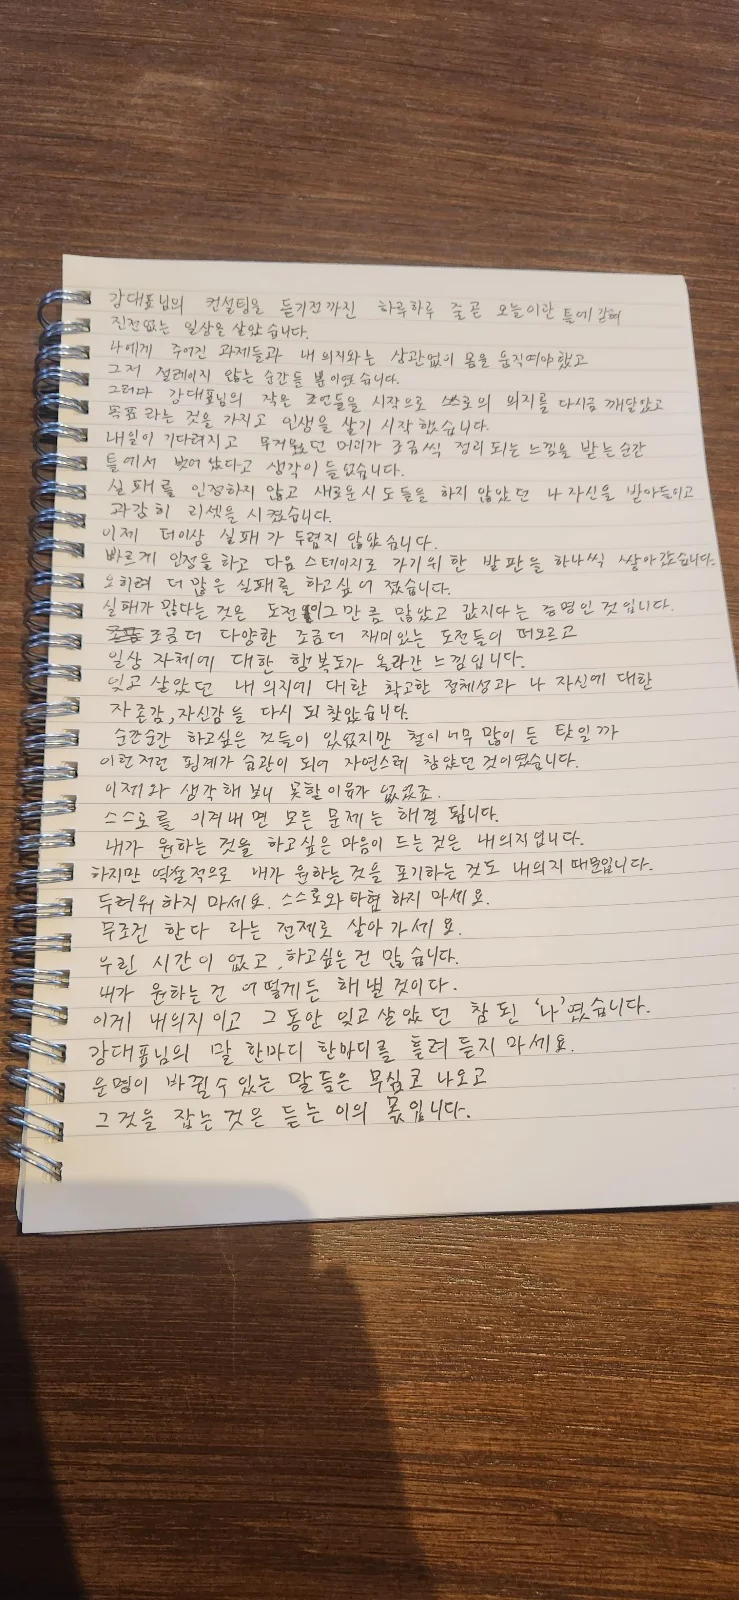 강대표님의 컨설팅을 듣기전까진 하루하루 줄곧 오늘이란 틀에 갇혀
진전없는 일상을 살았습니다.
나에게 주어진 과제들과 내 의지와는 상관없이 몸을 움직여야 했고
그저 설레이지 않는 순간들 뿐이였습니다.
그러다 강대표님의 작은 조언들을 시작으로 스스로의 의지를 다시금 깨달았고
목표라는 것을 가지고 인생을 살기 시작했습니다.
내일이 기다려지고 무거웠던 머리가 조금씩 정리되는 느낌을 받는순간
틀에서 벗어났다고 생각이 들었습니다.
실패를 인정하지 않고 새로운시도들을 하지 않았던 나 자신을 받아들이고
과감히 리셋을 시켰습니다.
이제 더이상 실패가 두렵지 않았습니다.
빠르게 인정을 하고 다음 스테이지로 가기위한 발판을 하나씩 쌓아갔습니다.
오히려 더 많은 실패를 하고싶어 졌습니다.
실패가 많다는 것은 도전이 그만큼 많았고 값지다는 증명인것입니다.
조금더 다양한 조금더 재미있는 도전들이 떠오르고
일상 자체에 대한 행복도가 올라간 느낌입니다.
잊고 살았던 내 의지에 대한 확고한 정체성과 나 자신에 대한
자존감, 자신감을 다시 되찾았습니다.
순간순간 하고싶은 것들이 있었지만 철이 너무 많이 든 탓일까
이런저런 핑계가 습관이 되어 자연스레 참았던 것이였습니다.
이제와 생각해보니 못할이유가 없었죠.
스스로를 이겨내면 모든 문제는 해결 됩니다.
내가 원하는 것을 하고싶은 마음이 드는것은 내의지입니다.
하지만 역설적으로 내가 원하는것을 포기하는것도 내의지 때문입니다.
두려워 하지 마세요. 스스로와 타협 하지 마세요.
무조건 한다 라는 전제로 살아가세요.
우린 시간이 없고, 하고싶은건 많습니다.
내가 원하는 건 어떻게든 해낼것이다.
이게 내의지이고 그동안 잊고살았던 참된 '나'였습니다.
강대표님의 말 한마디 한마디를 흘려듣지 마세요.
운명이 바뀔수있는 말들은 무심코 나오고
그것을 잡는것은 듣는이의 몫입니다.